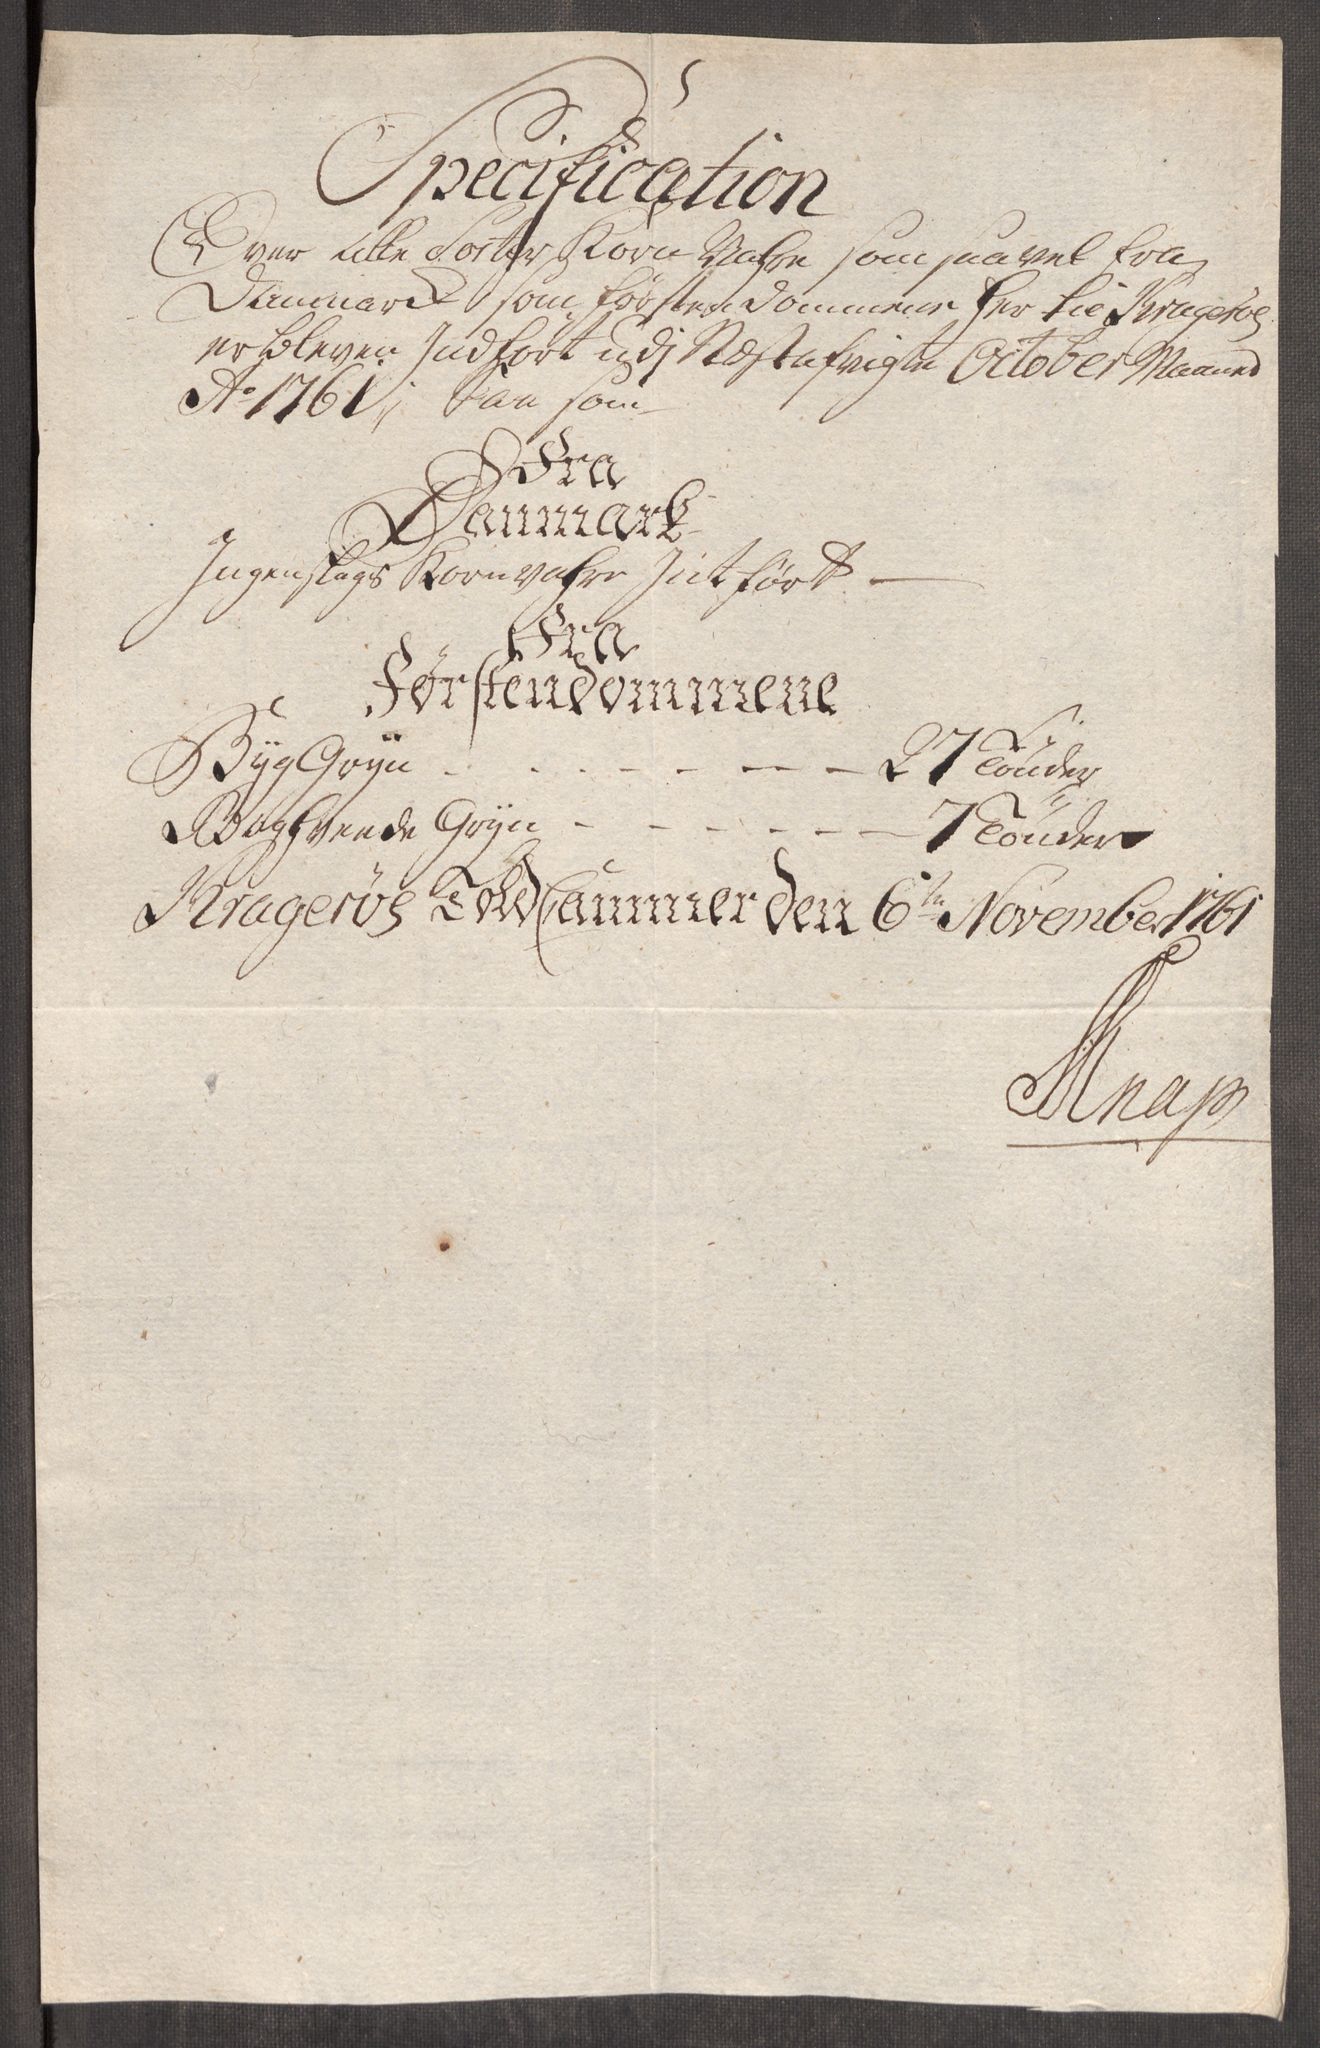 Specification
Over alle Sorter Korn Vahre som saavel fra
Danmarck som förstendommene her til Kragerøe
er bleven Indhört udj Næst afvigte October Maaned
Ao 1761; Saa som
Fra
Danmark
Ingenslags Kornvahre Indført
Fra
Førstendommene
Byg Gryn - - - - - - - 27 Tönder
Boghvede Gryn - - - - - - 7 Tönder
Kragerøes Told Cammer den 6te November 1761
Knap